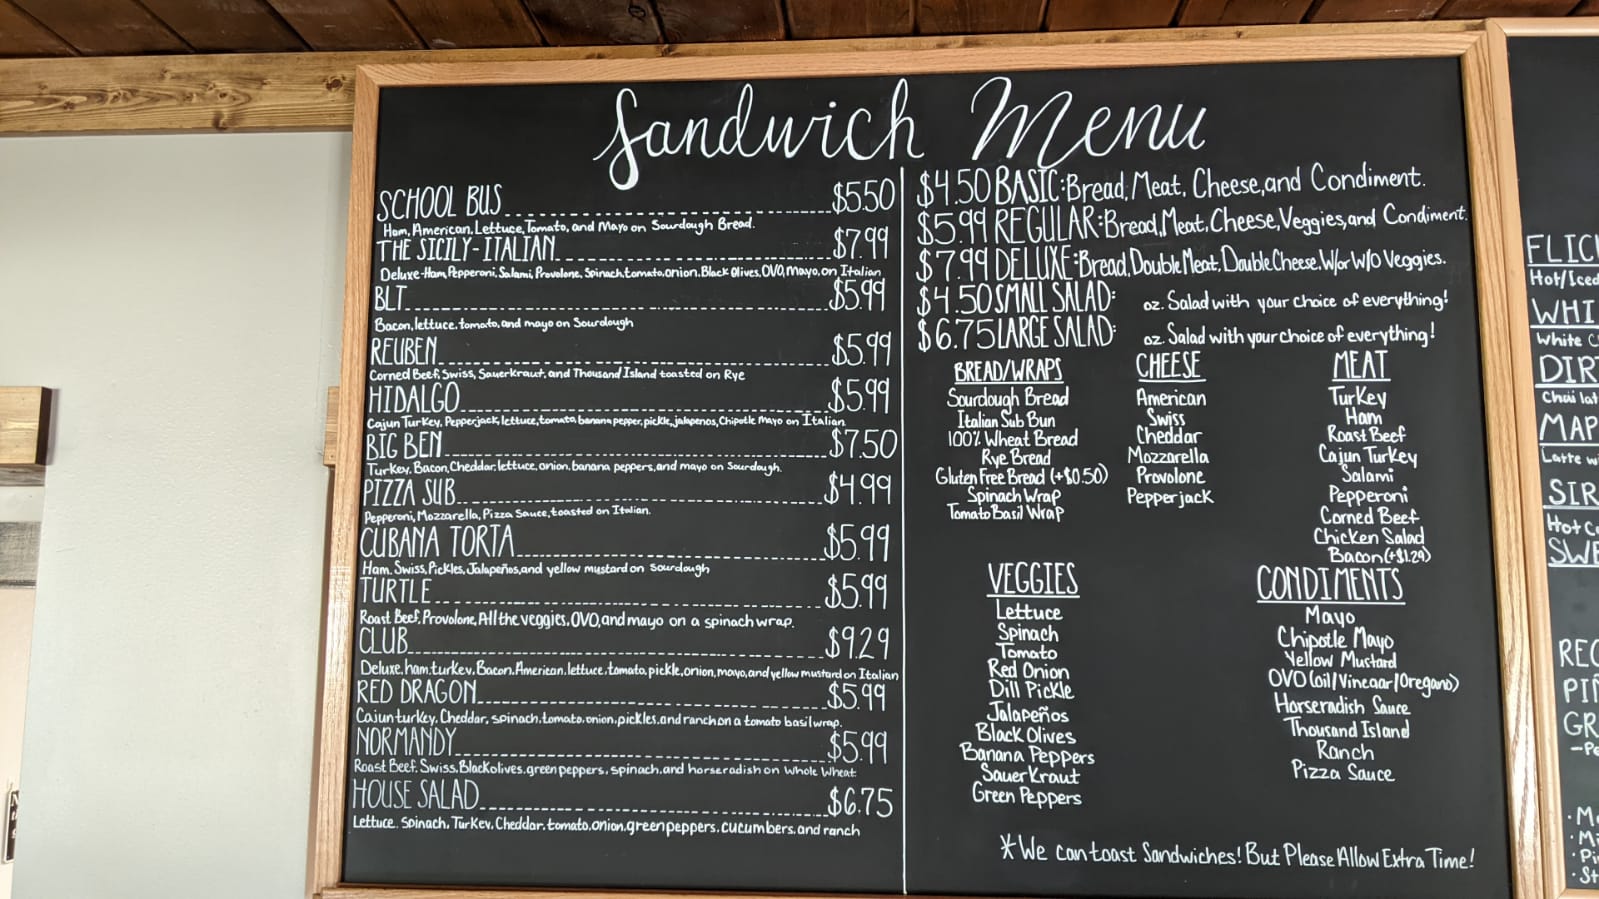 Sandwich Menu
SCHOOL BUS $5.50
Ham, American, Lettuce, Tomato, and Mayo on Sourdough Bread.
THE SICILY-ITALIAN $7.99
Deluxe-Ham, Pepperoni, Salami, Provolone, Spinach, tomato, onion, Black Olives, OVO, Mayo, on Italian
BLT $5.99
Bacon, lettuce, tomato, and mayo on Sourdough
REUBEN $5.99
Corned Beef, Swiss, Sauerkraut, and Thousand Island toasted on Rye
HIDALGO $5.99
Cajun Turkey, Pepperjack, lettuce, tomato, banana pepper, pickle, jalapenos, Chipotle Mayo on Italian
BIG BEN $7.50
Turkey, Bacon, Cheddar, lettuce, onion, banana peppers, and mayo on Sourdough.
PIZZA SUB $4.99
Pepperoni, Mozzarella, Pizza Sauce, toasted on Italian.
CUBANA TORTA $5.99
Ham, Swiss, Pickles, Jalapeños, and yellow mustard on sourdough
TURTLE $5.99
Roast Beef, Provolone, All the veggies, OVO, and mayo on a spinach wrap.
CLUB $9.29
Deluxe, ham, turkey, Bacon, American, lettuce, tomato, pickle, onion, mayo, and yellow mustard on Italian
RED DRAGON $5.99
Cajun turkey, Cheddar, spinach, tomato, onion, pickles, and ranch on a tomato basil wrap.
NORMANDY $5.99
Roast Beef, Swiss, Black olives, green peppers, spinach, and horseradish on Whole Wheat
HOUSE SALAD $6.75
Lettuce, Spinach, Turkey, Cheddar, tomato, onion, green peppers, cucumbers, and ranch
$4.50 BASIC: Bread, Meat, Cheese, and Condiment.
$5.99 REGULAR: Bread, Meat, Cheese, Veggies, and Condiment.
$7.99 DELUXE: Bread, Double Meat, Double Cheese, W/or W/O Veggies.
$4.50 SMALL SALAD: oz. Salad with your choice of everything!
$6.75 LARGE SALAD: oz. Salad with your choice of everything!
BREAD/WRAPS
Sourdough Bread
Italian Sub Bun
100% Wheat Bread
Rye Bread
Gluten Free Bread (+$0.50)
Spinach Wrap
Tomato Basil Wrap
CHEESE
American
Swiss
Cheddar
Mozzarella
Provolone
Pepperjack
MEAT
Turkey
Ham
Roast Beef
Cajun Turkey
Salami
Pepperoni
Corned Beef
Chicken Salad
Bacon (+$1.29)
VEGGIES
Lettuce
Spinach
Tomato
Red Onion
Dill Pickle
Jalapeños
Black Olives
Banana Peppers
Sauer Kraut
Green Peppers
CONDIMENTS
Mayo
Chipotle Mayo
Yellow Mustard
OVO (oil/Vinegar/Oregano)
Horseradish Sauce
Thousand Island
Ranch
Pizza Sauce
*We can toast Sandwiches! But Please Allow Extra Time!
Hot/Iced
White
Chai lat
Latte